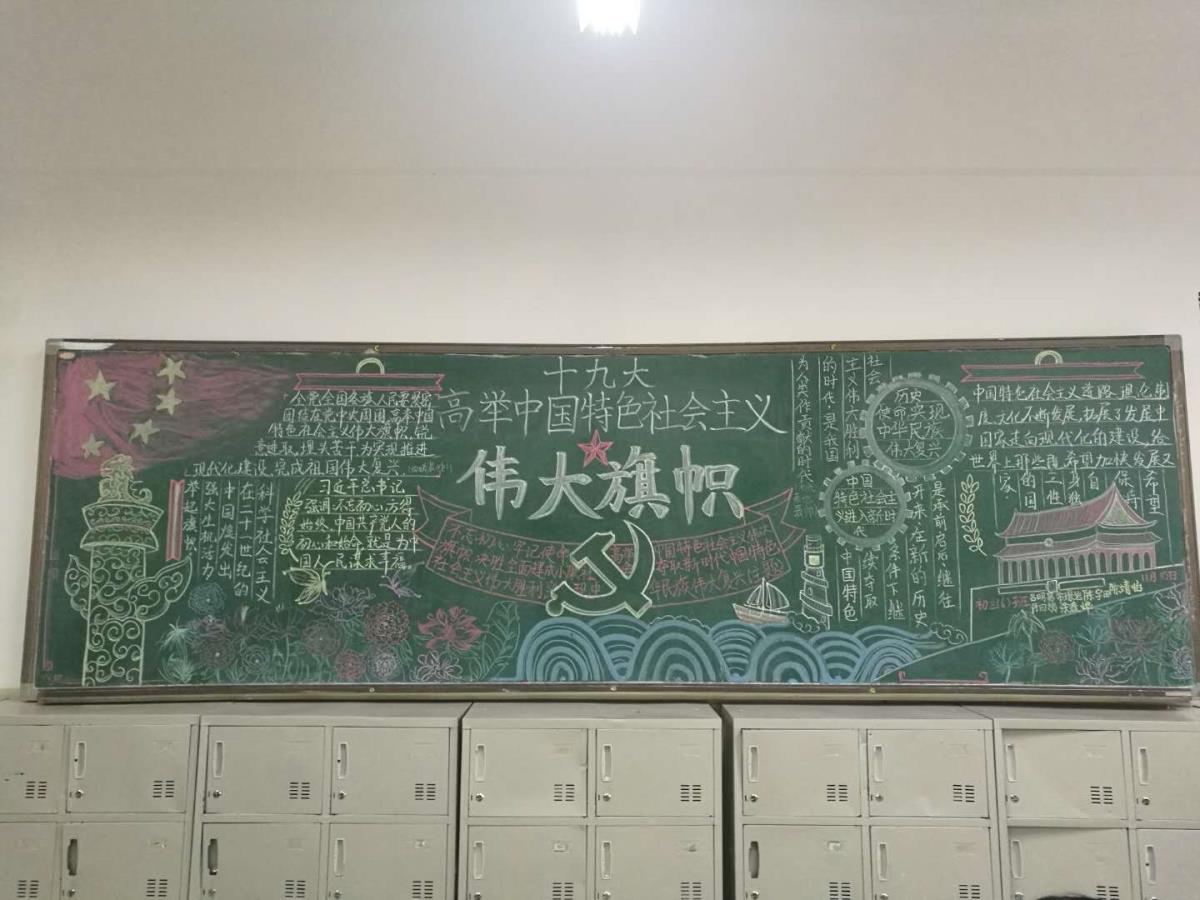 十九大
高举中国特色社会主义
伟大旗帜
全党全国各族人民要紧密
团结在党中央周围,高举中国
特色社会主义伟大旗帜,锐
意进取,埋头苦干,为实现推进
现代化建设,完成祖国伟大复兴
科学社会主义
在二十一世纪的
中国焕发出
强大生机活力
举起旗帜
习近平总书记
强调,不忘初心,方得
始终。中国共产党人的
初心和使命,就是为中
国人民谋幸福。
不忘初心,牢记使命,高举中国特色社会主义伟大
旗帜,决胜全面建成小康社会,夺取新时代中国特色
社会主义伟大胜利
民族伟大复兴
社会
主义伟大胜利
的时代,是我国
为人类作贡献的时代
历史
使命实现
中华民族
伟大复兴
中国
特色社会主
义进入新时
代
是承前启后、继往
开来、在新的历史
条件下继
续夺取
中国特色
中国特色社会主义道路、理论、制
度、文化不断发展,拓展了发展中
国家走向现代化的建设,给
世界上那些既希望加快发展又
希望保持
自身独立性
的国家
初三(1)班
11月10日